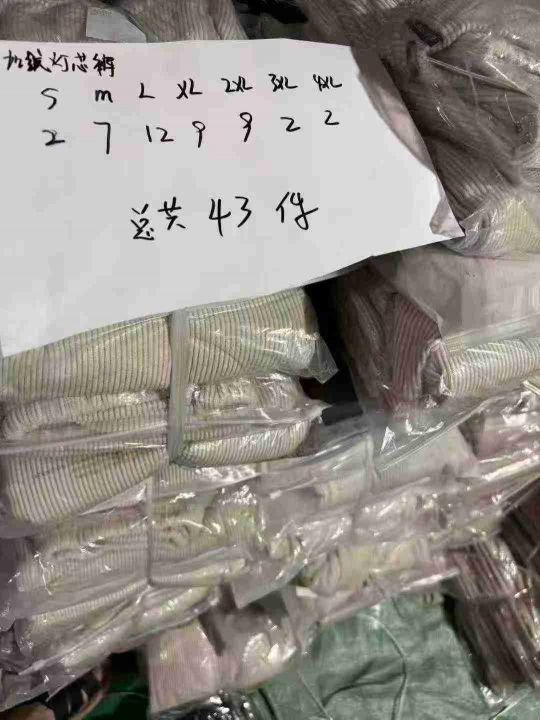 加绒灯芯裤
S M L XL 2XL 3XL 4XL
2 7 12 9 9 2 2
总共 43 件